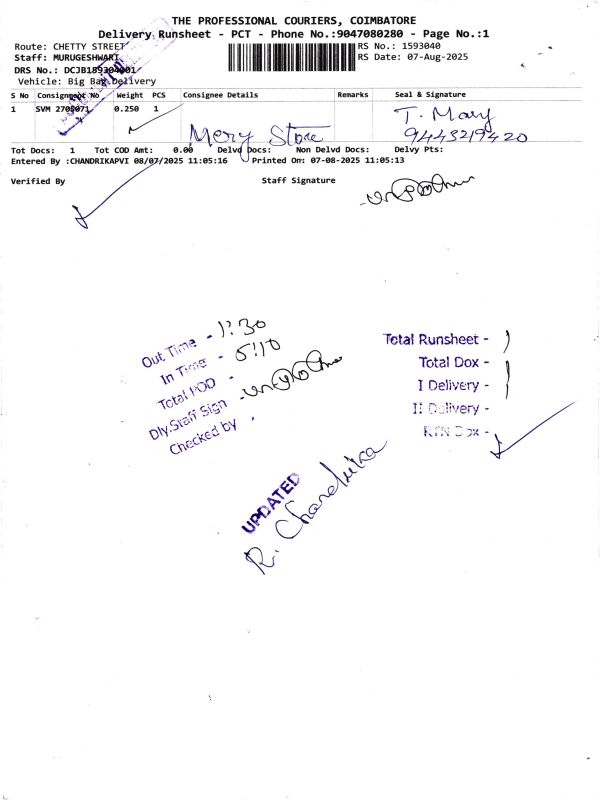 THE PROFESSIONAL COURIERS, COIMBATORE
Delivery Runsheet - PCT - Phone No.:9047080280 - Page No.:1
Route: CHETTY STREET
RS No.: 1593040
Staff: MURUGESHWARI
RS Date: 07-Aug-2025
DRS No.: DCJB159304001
Vehicle: Big Bag Delivery
S No Consignment No Weight PCS Consignee Details Remarks Seal & Signature
1 SVM 2705071 0.250 1 Mery Store T. Mary
9443219420
Tot Docs: 1 Tot COD Amt: 0.00 Delvd Docs: Non Delvd Docs: Delvy Pts:
Entered By :CHANDRIKAPVI 08/07/2025 11:05:16 Printed On: 07-08-2025 11:05:13
Verified By Staff Signature
Out Time - 11:30
In Time - 5:10
Total POD -
Dly.Staff Sign -
Checked by
Total Runsheet - 1
Total Dox - 1
I Delivery -
II Delivery -
RTN Dox -
UPDATED
R. Chandrika